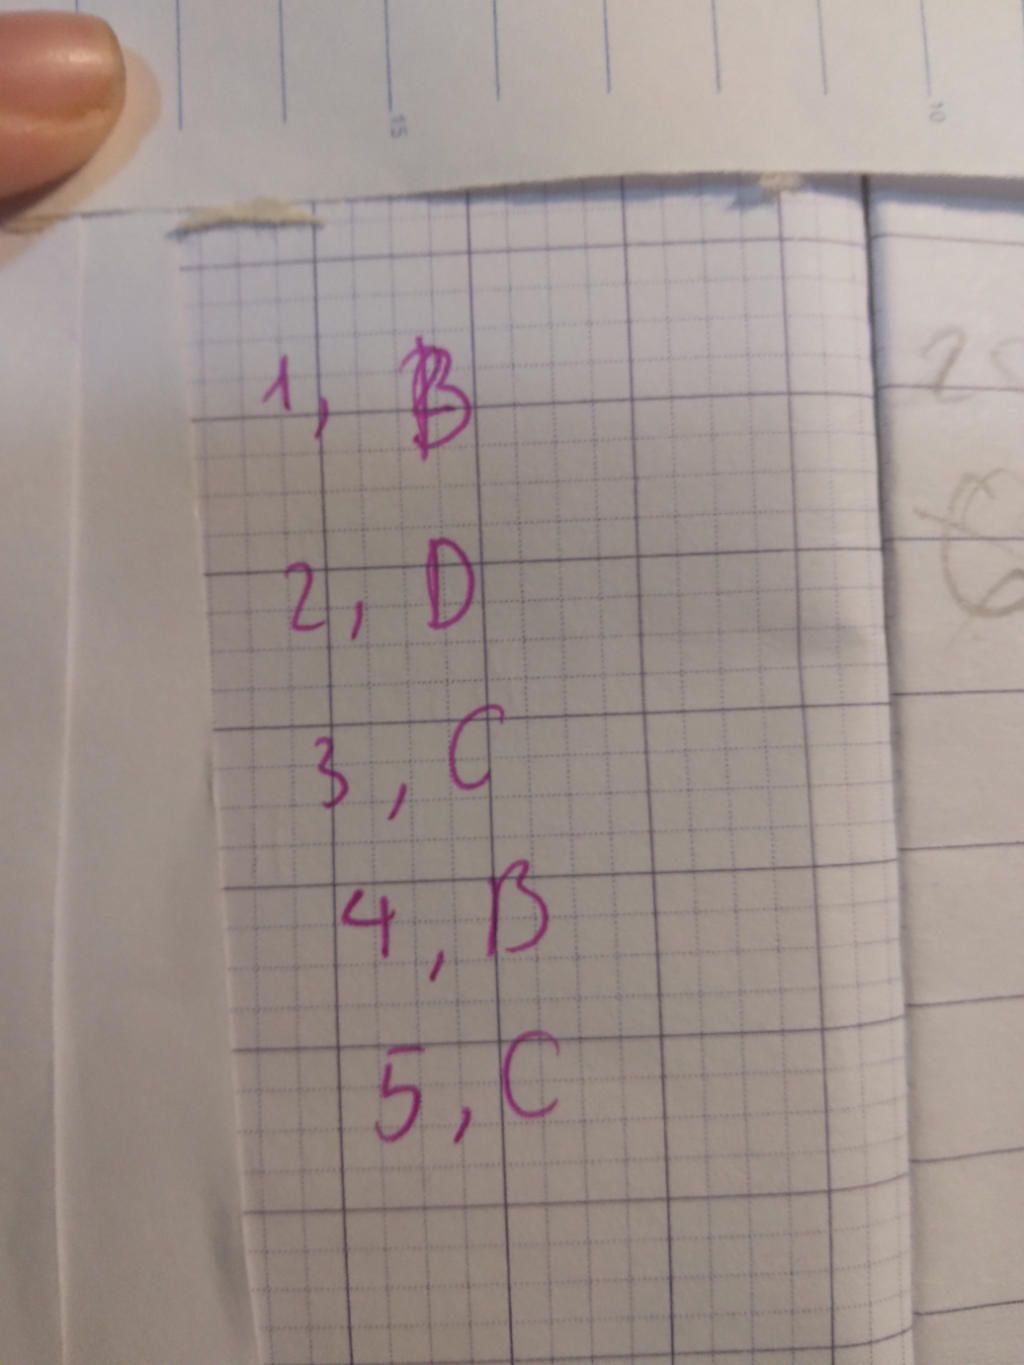 15
10
1, B
2, D
3, C
4, B
5, C